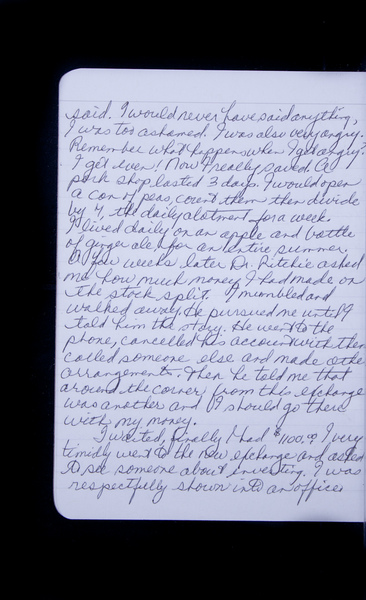 said. I would never have said anything,
I was too ashamed. I was also very angry.
Remember what happens when I get angry?
I get even! Now I really saved. A
pork chop lasted 3 days. I would open
a can of peas, count them then divide
by 7, the daily alotment for a week.
I lived daily on an apple and bottle
of ginger ale for an entire summer.
A few weeks later Dr. Ritchie asked
me how much money I had made on
the stock split. I mumbled and
walked away. He pursued me until I
told him the story. He went to the
phone, cancelled his account with them
called someone else and made other
arrangements. Then he told me that
around the corner from this exchange
was another and I should go there
with my money.
I waited, finally I had $1100.00 I very
timidly went to the new exchange and asked
to see someone about investing. I was
respectfully shown into an office